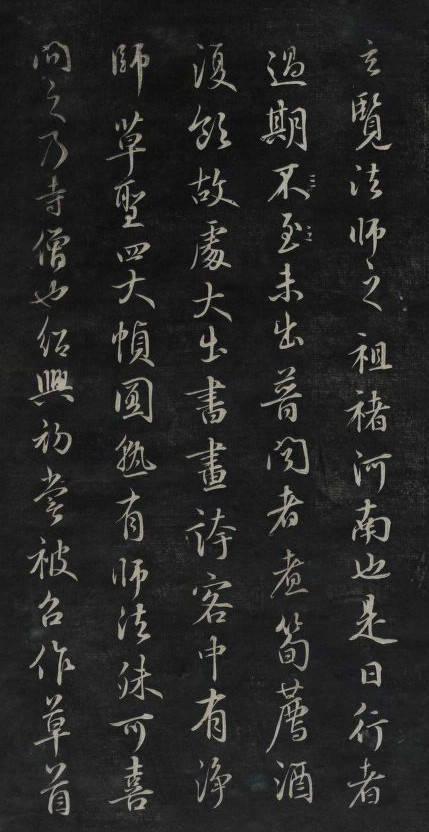 玄覽法師之祖褚河南也是日行者
過期不至未出音閔者煮筍薦酒
復飲故處大出書畫誇客中有浄
師草聖四大幀圓熟有師法殊可喜
問之乃寺僧也紹興初嘗被召作草首